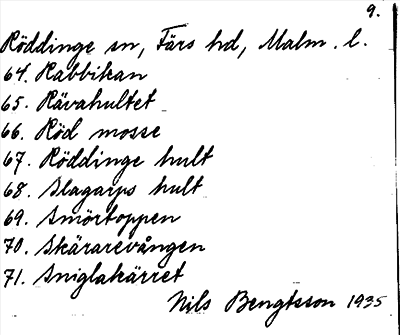 9.
Röddinge sn, Färs hd, Malm. l.
64. Rabbikan
65. Rävahultet
66. Röd mosse
67. Röddinge hult
68. Slagarps hult
69. Smörtoppen
70. Skärarevången
71. Sniglakärret
Nils Bengtsson 1935